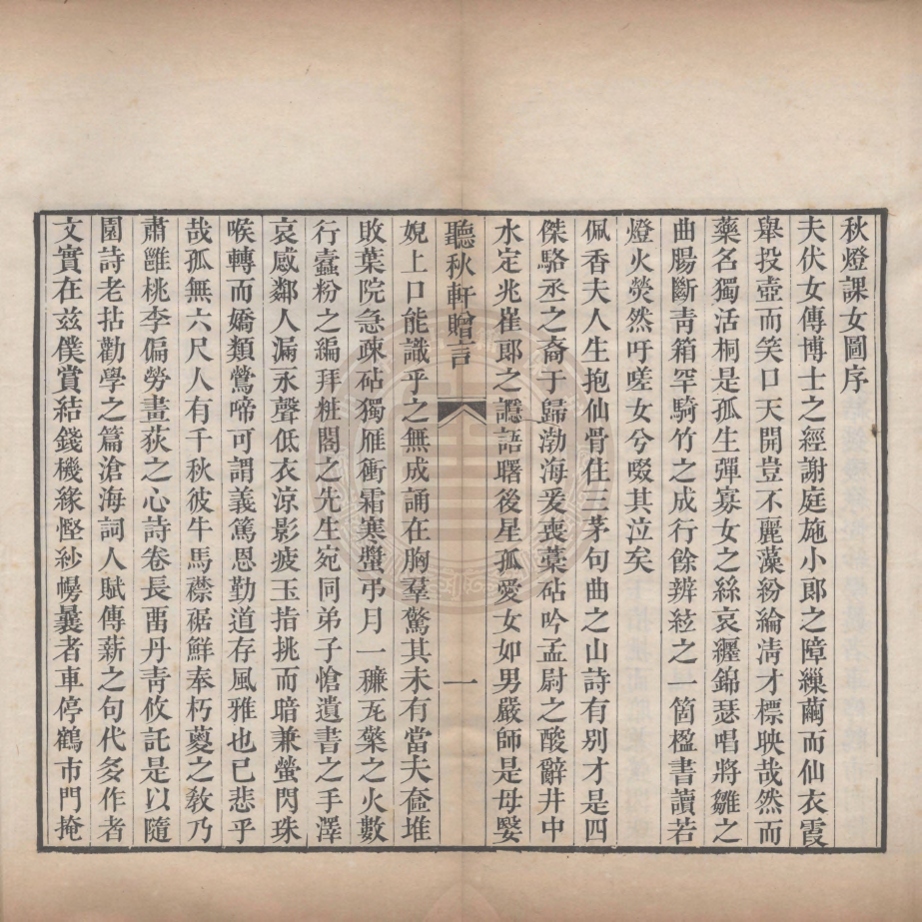 秋燈課女圖序
夫伏女傳博士之經謝庭施小郎之障繅繭而仙衣霞
舉投壺而笑口天開豈不麗藻紛綸淸才標映哉然而
藥名獨活桐是孤生彈寡女之絲哀纒錦瑟唱將雛之
曲腸斷靑箱罕騎竹之成行餘辨絃之一箇楹書讀若
燈火熒然吁嗟女兮啜其泣矣
佩香夫人生抱仙骨住三茅句曲之山詩有别才是四
傑駱丞之裔于歸渤海爰喪藁砧吟孟尉之酸辭井中
水定兆崔郎之讔語曙後星孤愛女如男嚴師是母嫛
聽秋軒贈言
一
婗上口能識乎之無成誦在胸羣驚其未有當夫奩堆
敗葉院急疎砧獨雁衝霜寒螿弔月一穅瓦檠之火數
行蠹粉之編拜粧閣之先生宛同弟子愴遺書之手澤
哀感鄰人漏永聲低衣涼影疲玉指挑而暗兼螢閃珠
喉轉而嬌類鶯啼可謂義篤恩勤道存風雅也已悲乎
哉孤無六尺人有千秋彼牛馬襟裾鮮奉朽薆之敎乃
肅雝桃李偏勞畫荻之心詩卷長畱丹靑攸託是以隨
園詩老拈勸學之篇滄海詞人賦傳薪之句代多作者
文實在兹僕賞結錢機緣慳紗幔曩者車停鶴市門掩